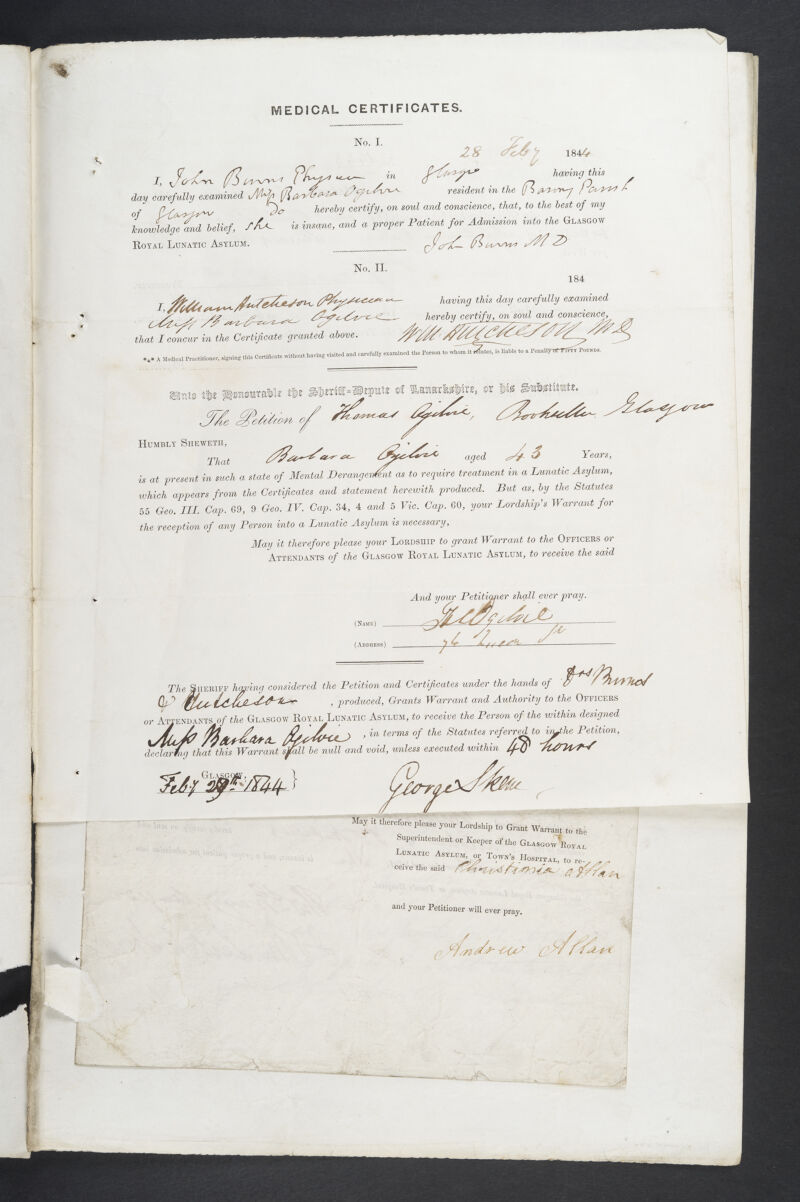 MEDICAL CERTIFICATES.
No. I.
28 Feby 1844
I, John Burns Physician in Glasgow having this
day carefully examined Miss Barbara Ogilvie resident in the Barony Parish
of Glasgow Do hereby certify, on soul and conscience, that, to the best of my
knowledge and belief, she is insane, and a proper Patient for Admission into the GLASGOW
ROYAL LUNATIC ASYLUM.
John Burns MD
No. II.
184
I, William Hutcheson Physician having this day carefully examined
Miss Barbara Ogilvie hereby certify, on soul and conscience,
that I concur in the Certificate granted above. Will Hutcheson MD
*** A Medical Practitioner, signing this Certificate without having visited and carefully examined the Person to whom it relates, is liable to a Penalty of FIFTY POUNDS.
Unto the Honourable the Sheriff-Depute of Lanarkshire, or his Substitute.
The Petition of Thomas Ogilvie, Bookseller Glasgow
HUMBLY SHEWETH,
That Barbara Ogilvie aged 43 Years,
is at present in such a state of Mental Derangement as to require treatment in a Lunatic Asylum,
which appears from the Certificates and statement herewith produced. But as, by the Statutes
55 Geo. III. Cap. 69, 9 Geo. IV. Cap. 34, 4 and 5 Vic. Cap. 60, your Lordship's Warrant for
the reception of any Person into a Lunatic Asylum is necessary,
May it therefore please your LORDSHIP to grant Warrant to the OFFICERS or
ATTENDANTS of the GLASGOW ROYAL LUNATIC ASYLUM, to receive the said
And your Petitioner shall ever pray.
(NAME) Ogilvie
(ADDRESS) 76 St
The SHERIFF having considered the Petition and Certificates under the hands of Drs Burns
& Hutcheson, produced, Grants Warrant and Authority to the OFFICERS
or ATTENDANTS of the GLASGOW ROYAL LUNATIC ASYLUM, to receive the Person of the within designed
Miss Barbara Ogilvie, in terms of the Statutes referred to in the Petition,
declaring that this Warrant shall be null and void, unless executed within 48 hours
GLASGOW,
Feby 29th 1844 } George Skene
May it therefore please your Lordship to Grant Warrant to the
Superintendent or Keeper of the GLASGOW ROYAL
LUNATIC ASYLUM, or TOWN'S HOSPITAL, to re-
ceive the said Christiania Allan
and your Petitioner will ever pray.
Andrew Allan